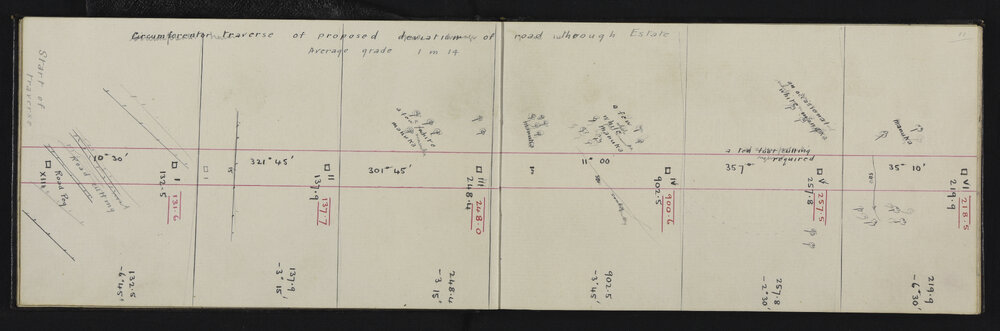 11
Circumferentor traverse of proposed deviation of road through Estate
Average grade 1 in 14
Start of traverse
Road cutting
XIIA Road Peg
I
132.5
131.6
321° 45'
II
137.9
137.7
301° 45'
a few white manuka
III
248.4
248.0
manuka
11° 00
a few white manuka
IV
902.5
900.6
357°
an occasional white manuka
a ten foot cutting required
V
257.8
257.5
35° 10'
manuka
VI
219.9
218.5
132.5
-6° 45'
137.9
-3° 15'
248.4
-3° 15'
902.5
-3° 45'
257.8
-2° 30'
219.9
-6° 30'